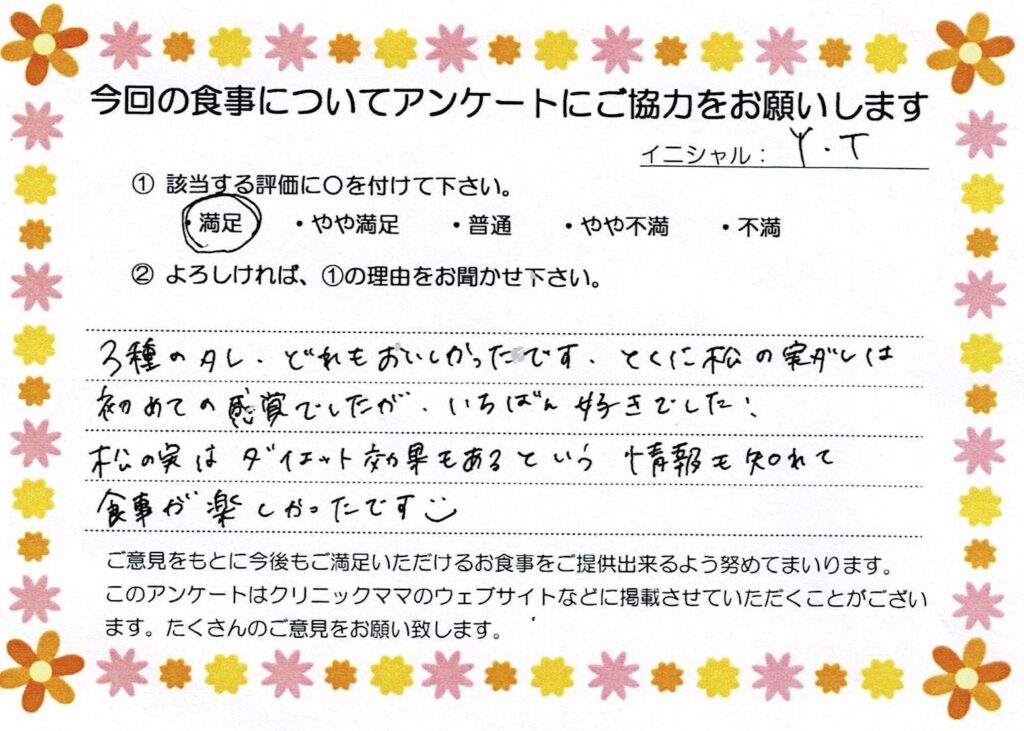 今回の食事についてアンケートにご協力をお願いします
イニシャル： Y.T
① 該当する評価に〇を付けて下さい。
・満足 ・やや満足 ・普通 ・やや不満 ・不満
② よろしければ、①の理由をお聞かせ下さい。
3種のタレ、どれもおいしかったです、とくに松の実ダレは
初めての感覚でしたが、いちばん好きでした！
松の実はダイエット効果もあるという情報も知れて
食事が楽しかったです
ご意見をもとに今後もご満足いただけるお食事をご提供出来るよう努めてまいります。
このアンケートはクリニックママのウェブサイトなどに掲載させていただくことがござい
ます。たくさんのご意見をお願い致します。